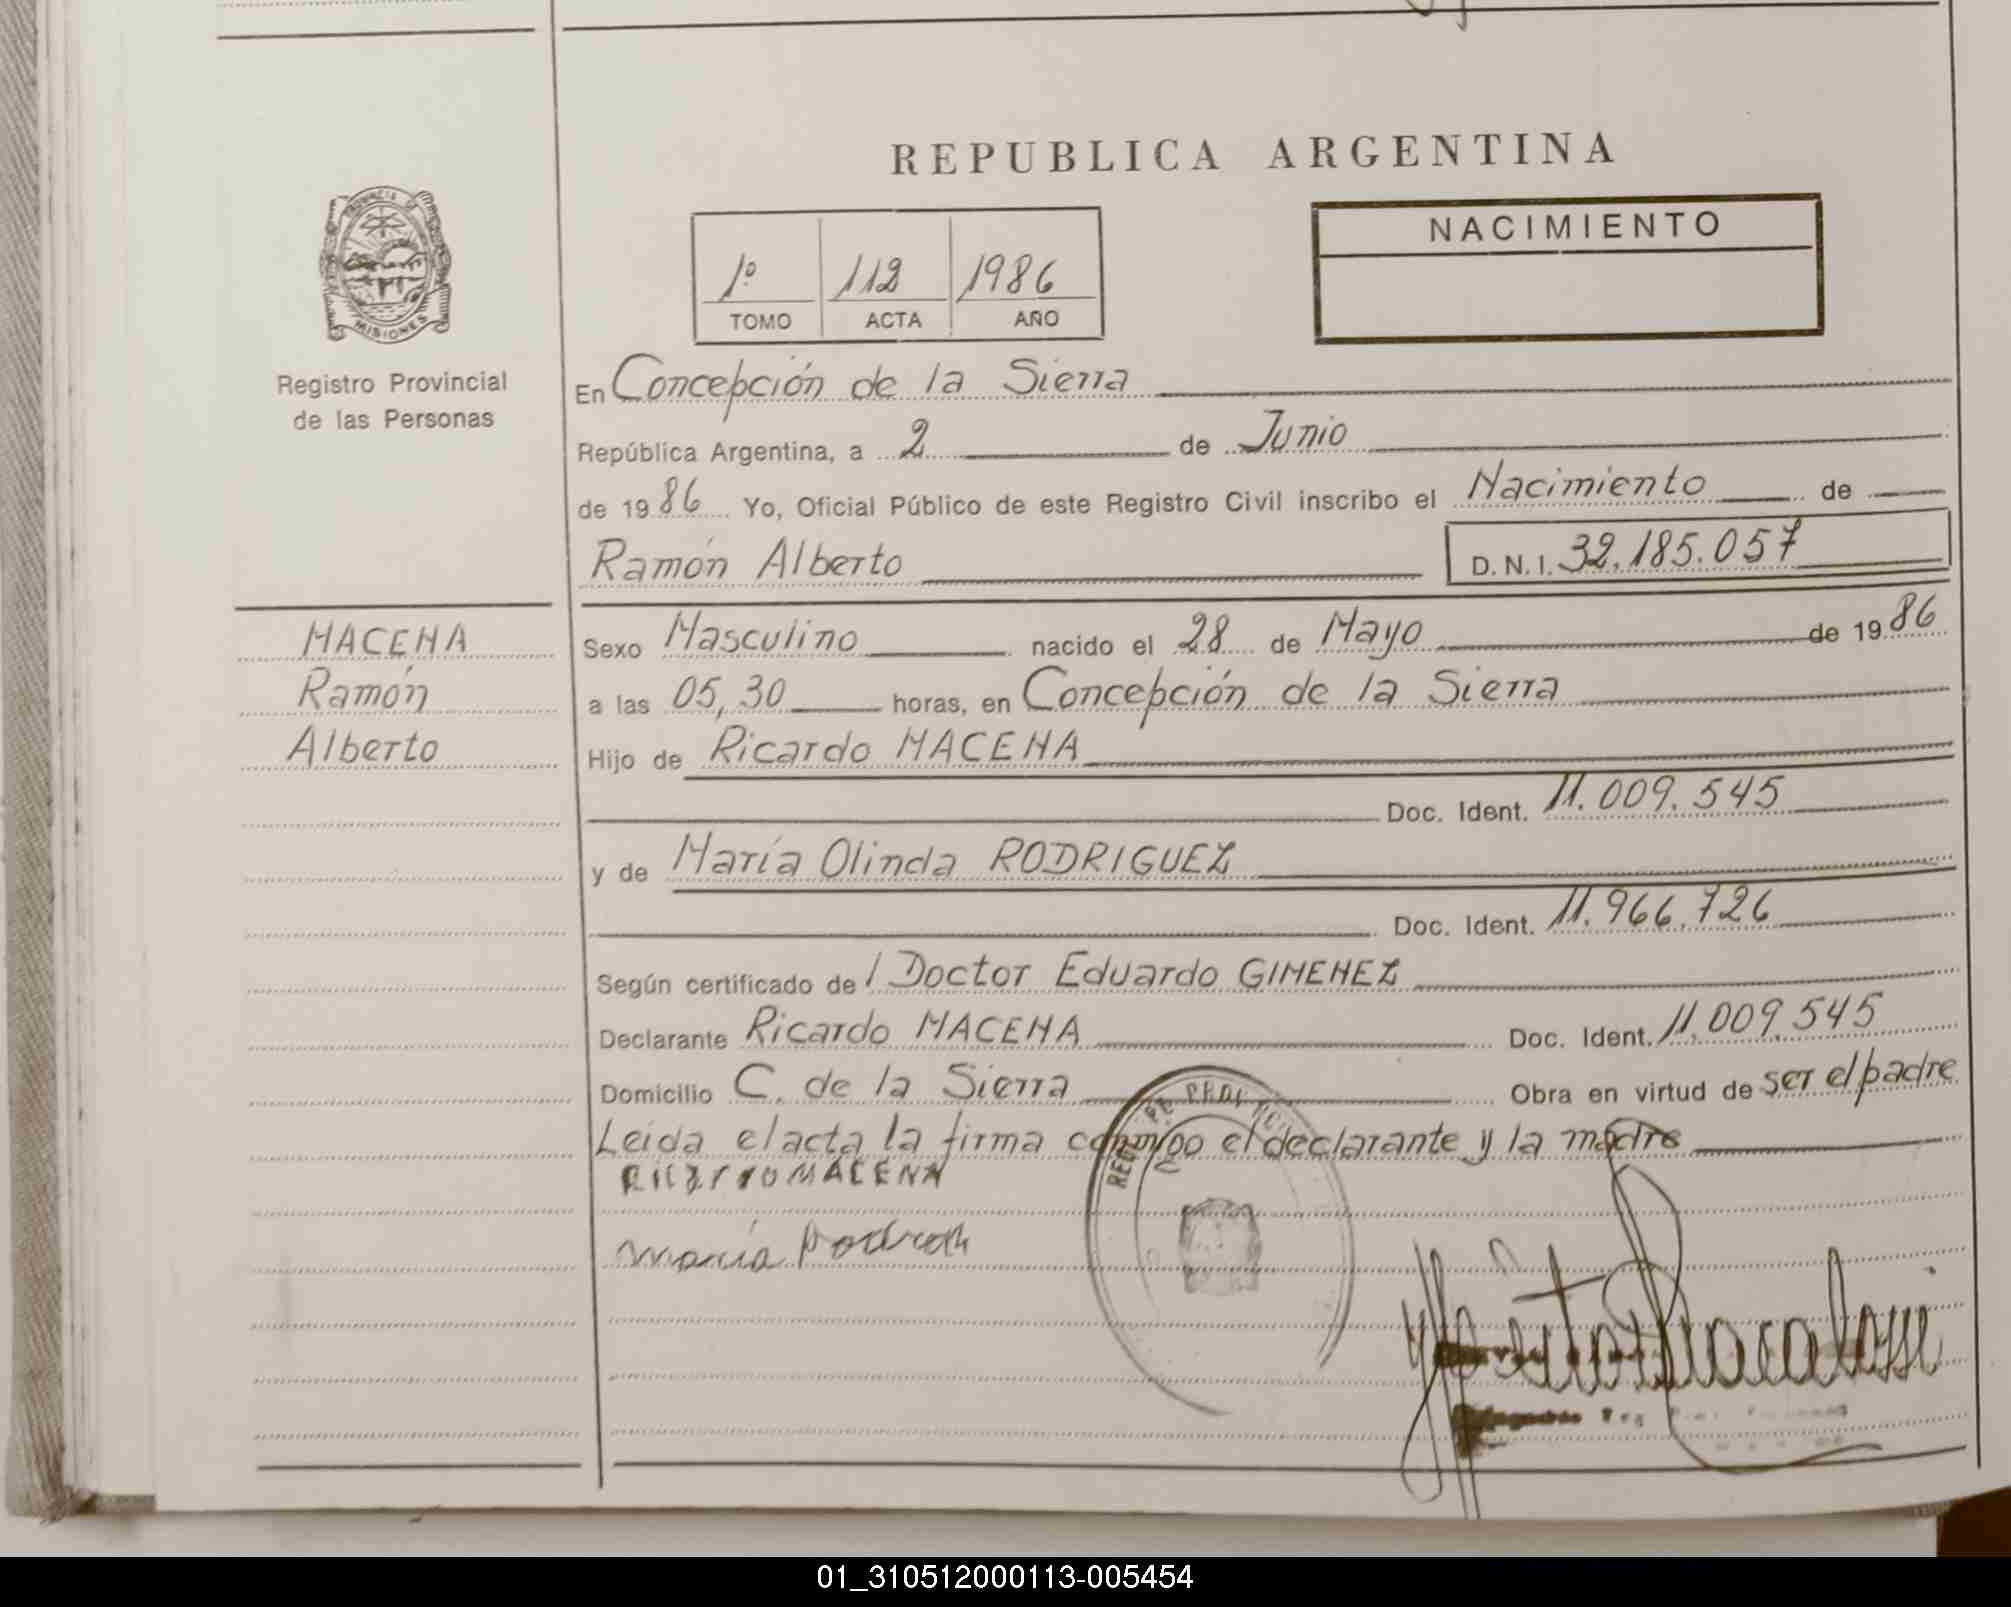 REPUBLICA ARGENTINA
PROVINCIA DE
MISIONES
Registro Provincial
de las Personas
NACIMIENTO
1º 112 1986
TOMO ACTA AÑO
En Concepción de la Sierra
República Argentina, a 2 de Junio
de 1986 Yo, Oficial Público de este Registro Civil inscribo el Nacimiento de
Ramón Alberto D.N.I. 32.185.057
MACENA
Ramón
Alberto
Sexo Masculino nacido el 28 de Mayo de 1986
a las 05,30 horas, en Concepción de la Sierra
Hijo de Ricardo MACENA
Doc. Ident. 11.009.545
y de María Olinda RODRIGUEZ
Doc. Ident. 11.966.726
Según certificado de l Doctor Eduardo GIMENEZ
Declarante Ricardo MACENA Doc. Ident. 11.009.545
Domicilio C. de la Sierra Obra en virtud de ser el padre
Leída el acta la firma conmigo el declarante y la madre
MACENA
maria
01_310512000113-005454